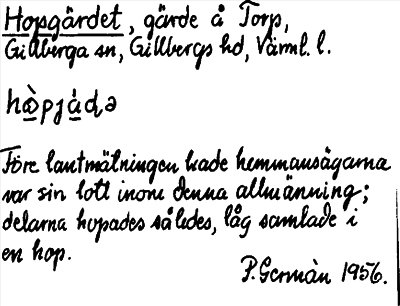 Hopgärdet, gärde å Torp,
Gillberga sn, Gillbergs hd, Värml. l.
hɷ̀pjä̀ḍə
Före lantmätningen hade hemmansägarna
var sin lott inom denna allmänning;
delarna hopades således, låg samlade i
en hop.
P. Germàn 1956.